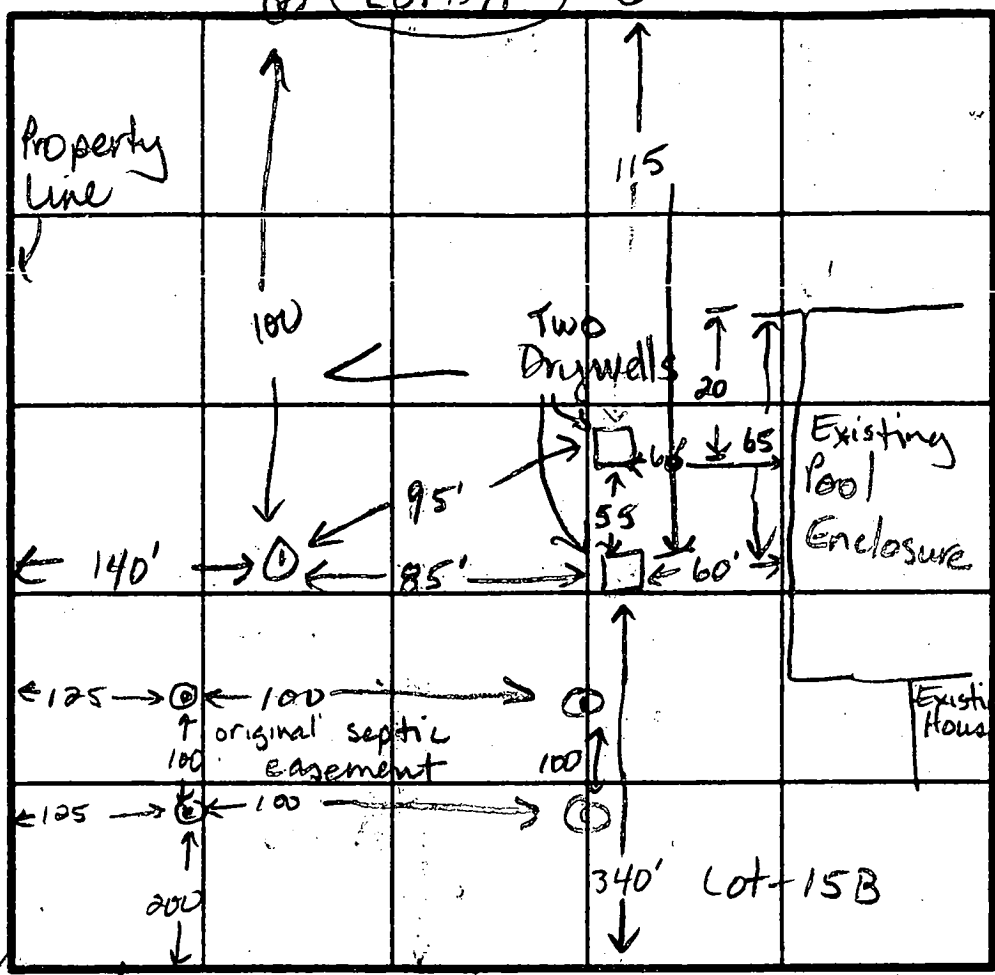 Property
Line
115
100
Two
Drywells
20
65
Existing
Pool
Enclosure
95'
55
140'
85'
60'
125
100
original septic
easement
100
100
125
100
200
340'
Lot-15B